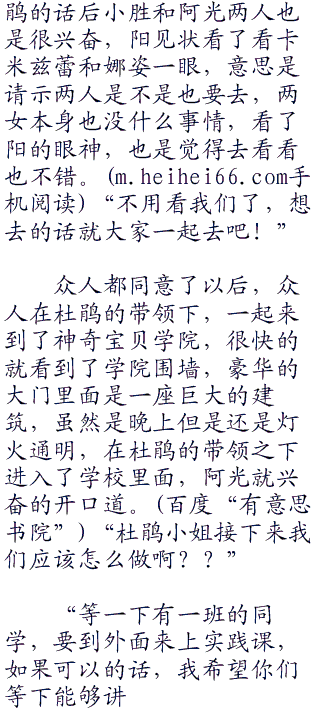 鹃的话后小胜和阿光两人也
是很兴奋，阳见状看了看卡
米兹蕾和娜姿一眼，意思是
请示两人是不是也要去，两
女本身也没什么事情，看了
阳的眼神，也是觉得去看看
也不错。(m.heihei66.com手
机阅读)“不用看我们了，想
去的话就大家一起去吧！”
众人都同意了以后，众
人在杜鹃的带领下，一起来
到了神奇宝贝学院，很快的
就看到了学院围墙，豪华的
大门里面是一座巨大的建
筑，虽然是晚上但是还是灯
火通明，在杜鹃的带领之下
进入了学校里面，阿光就兴
奋的开口道。(百度“有意思
书院”)“杜鹃小姐接下来我
们应该怎么做啊？？”
“等一下有一班的同
学，要到外面来上实践课，
如果可以的话，我希望你们
等下能够讲